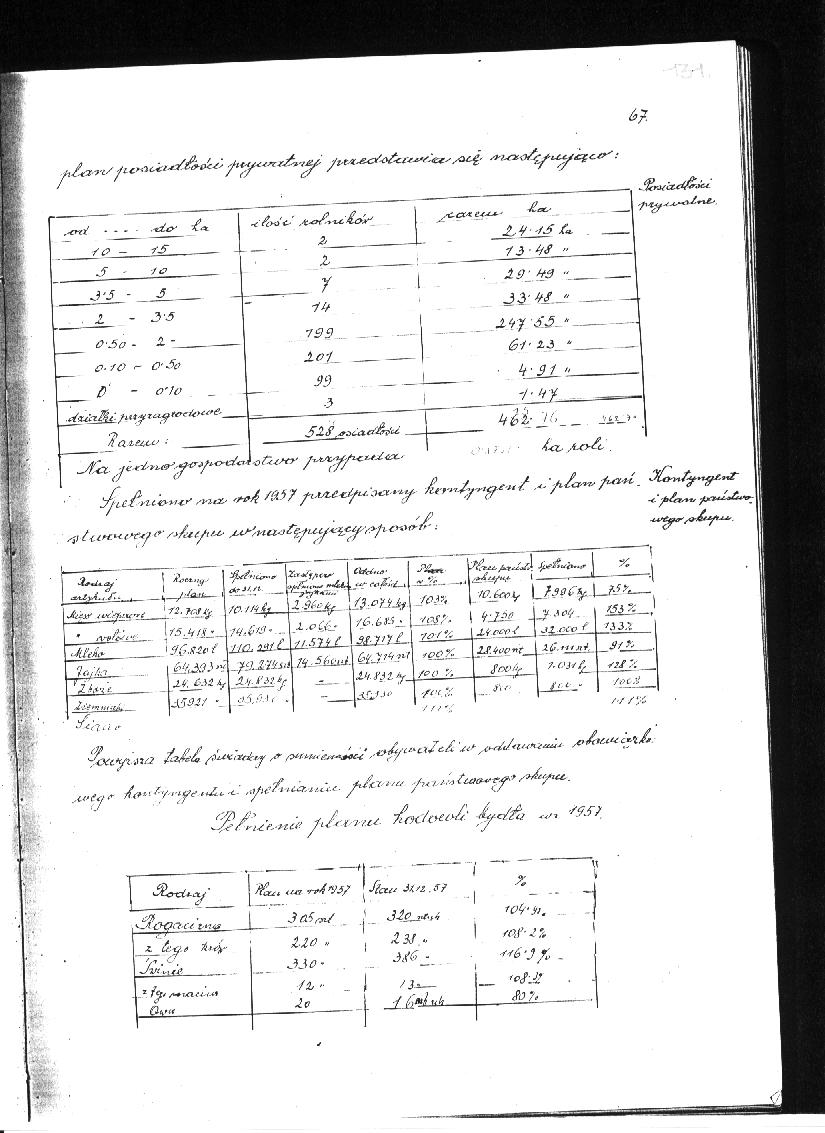 131.
67.
plan posiadłości prywatnej przedstawia się następująco:
Posiadłości
prywatne.
od .... do ha ilość rolników razem ha
10 – 15 2 24·15 ha
5 – 10 2 13·48 "
3·5 – 5 7 29·49 "
2 – 3·5 14 33·48 "
0·50 – 2 – 199 247·55 "
0·10 – 0·50 201 61·23 "
0 – 0·10 99 4·91 "
działki przyzagrodowe 3 1·47
Razem: 528 osiadłości 462·76
Na jedno gospodarstwo przypada ha roli.
Spełniono na rok 1957 przedpisany kontyngent i plan pań-
stwowego skupu w następujący sposób:
Kontyngent
i plan państwo-
wego skupu.
Rodzaj artyk. Roczny plan Spełniono do 31.12. Zastępczo Oddano w całości Plan w % Plan państw. skupu Spełniono %
Mięso wieprzowe 12.708 kg 10.114 kg 2.960 kg 13.074 kg 103% 10.600 kg 7.996 kg 75%
" wołowe 15.418 " 14.619 " 2.066 " 16.685 " 108% 4.750 7.304 153%
Mleko 96.820 l 110.291 l 11.574 l 98.717 l 101% 24000 l 32.000 l 133%
Jajka 64.393 szt 79.274 szt 14.560 szt 64.714 szt 100% 28.400 szt 26. szt. 91%
Zboże 24.632 kg 24.832 kg – 24.832 kg 100% 800 kg 1.031 kg 128%
Ziemniaki 35921 " 35.930 " – 35930 100% 800 800 " 100%
Siano 111% 111%
Powyższa tabela świadczy o sumienności obywateli w oddawaniu obowiązko-
wego kontyngentu i spełnianiu planu państwowego skupu.
Pełnienie planu hodowli bydła w r. 1957.
Rodzaj Plan na rok 1957 Stan 31.12.57 %
Rogacizna 305 szt 320 sztuk 104·9%
z tego krów 220 " 238 " 108·2%
Świnie 330 " 386 " 116·9%
z tego macior 12 " 13 " 108·3%
Owce 20 16 sztuk 80%